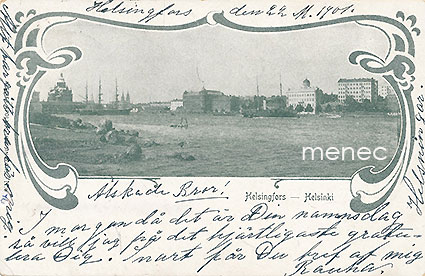 Helsingfors den 22 M. 1901.
menec
Helsingfors — Helsinki
Älskade Bror!
I morgon då dit är Din namnsdag
så vill jag på det hjärtligaste gratu-
lera Dig. Snart får Du bref af mig
Rauha.
Helsningar.